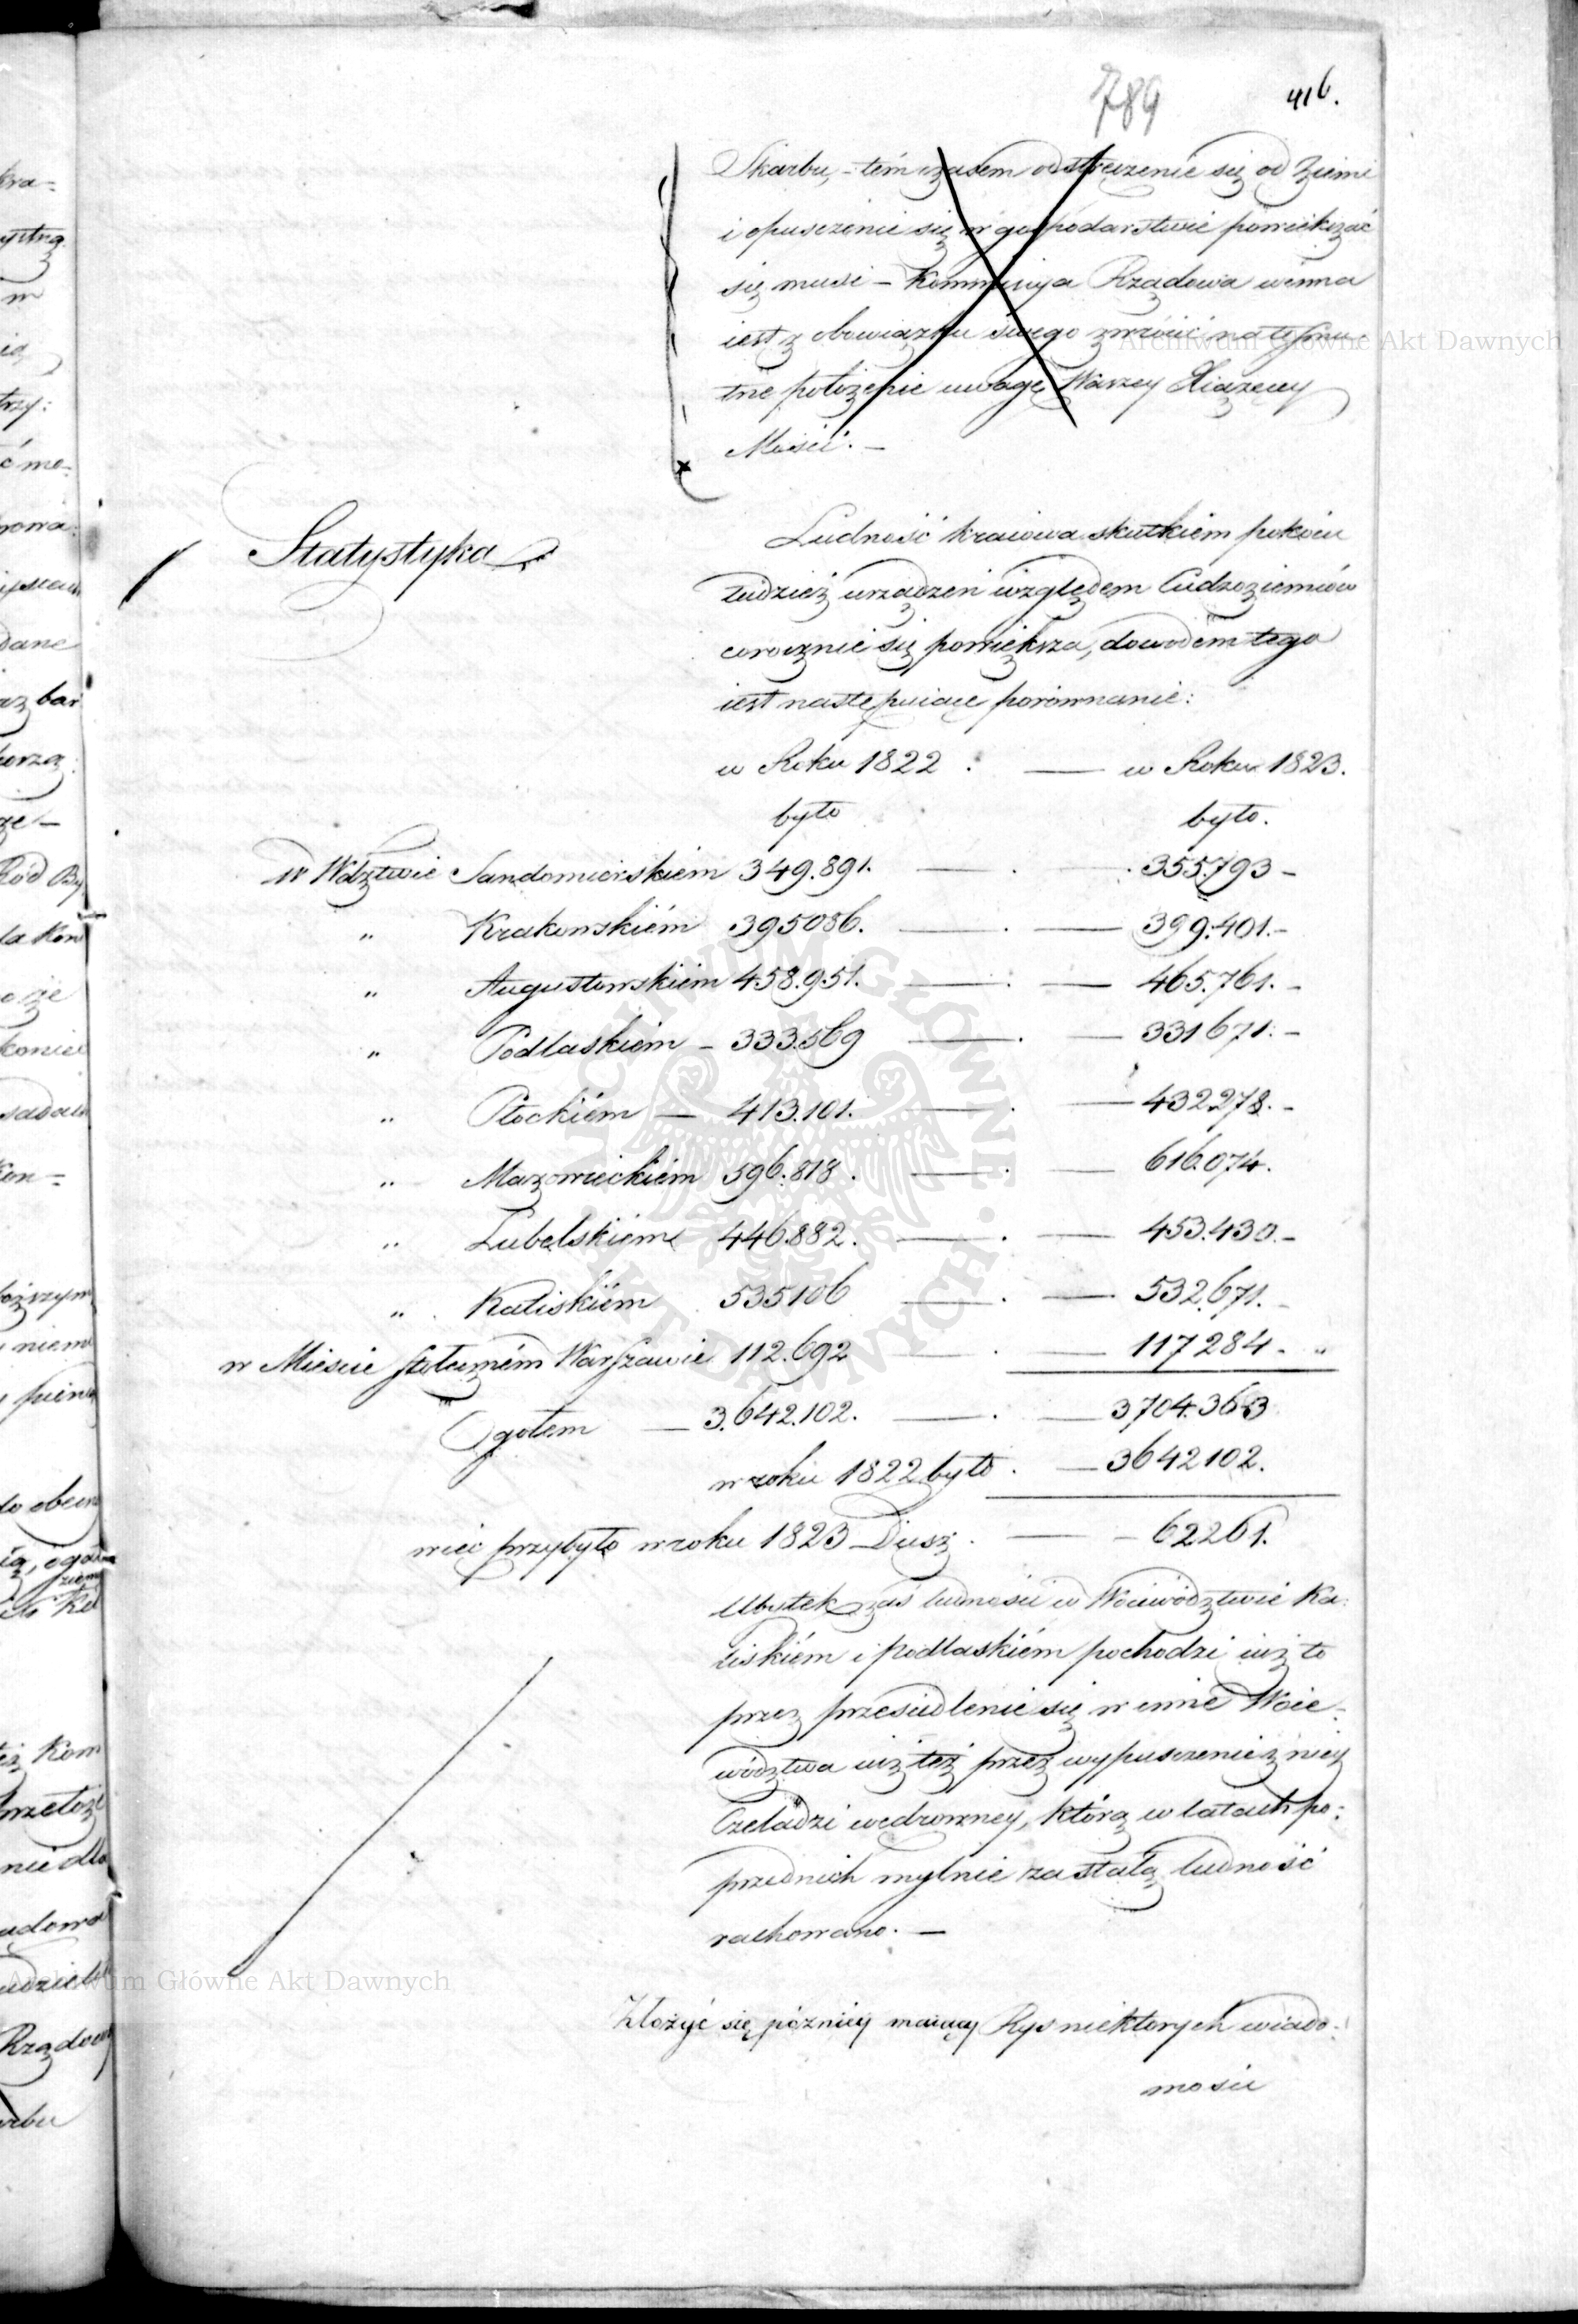 789 416.
Skarbu, - tém czasem odstręczenie się od Ziemi
i opuszczenie się w gospodarstwie powiększać
się musi – Kommissya Rządowa winna
iest z obowiązku swego zwrócić na te smu-
tne położenie uwagę Waszey Xiążęcey
Mości. –
Statystyka
Ludność kraiowa skutkiem pokoiu
tudzież urządzeń względem Cudzoziemców
corocznie się powiększa, dowodem tego
iest następuiące porównanie:
w Roku 1822 . — w Roku 1823.
było było.
w Wdztwie Sandomierskiem 349.891. — . — . 355.793 –
„ Krakowskiém 395086. — . — 399.401. –
„ Augustowskiém 458.951. — . — 465.761. –
„ Podlaskiém – 333.569 — . — 331671. –
„ Płockiém — 413.101. — . — 432.278. –
„ Mazowieckiém 596.818 . — . — 616.074.
„ Lubelskiém 446.882. — . — 453.430. –
„ Kaliskiém 535106 — . — 532.671. –
w Mieście stołeczném Warszawie 112.692 — . — 117284 - „
Ogołem — 3.642.102. — . — 3704.363
w roku 1822 było . — 3642102.
więc przybyło w roku 1823 Dusz . — – 62261.
Ubytek zaś ludności w Woiewództwie Ka-
liskiém i podlaskiém pochodzi iuż to
przez przesiedlenie się w inne Woie-
wództwa iuż też przez wypuszczenie z niey
Czeladzi wędrowney, którą w latach po-
przednich mylnie za stałą ludność
rachowano. —
Złożyć się późniey maiący Rys niektorych wiado-
mości
Archiwum Główne Akt Dawnych
Archiwum Główne Akt Dawnych
ARCHIWUM GŁÓWNE AKT DAWNYCH